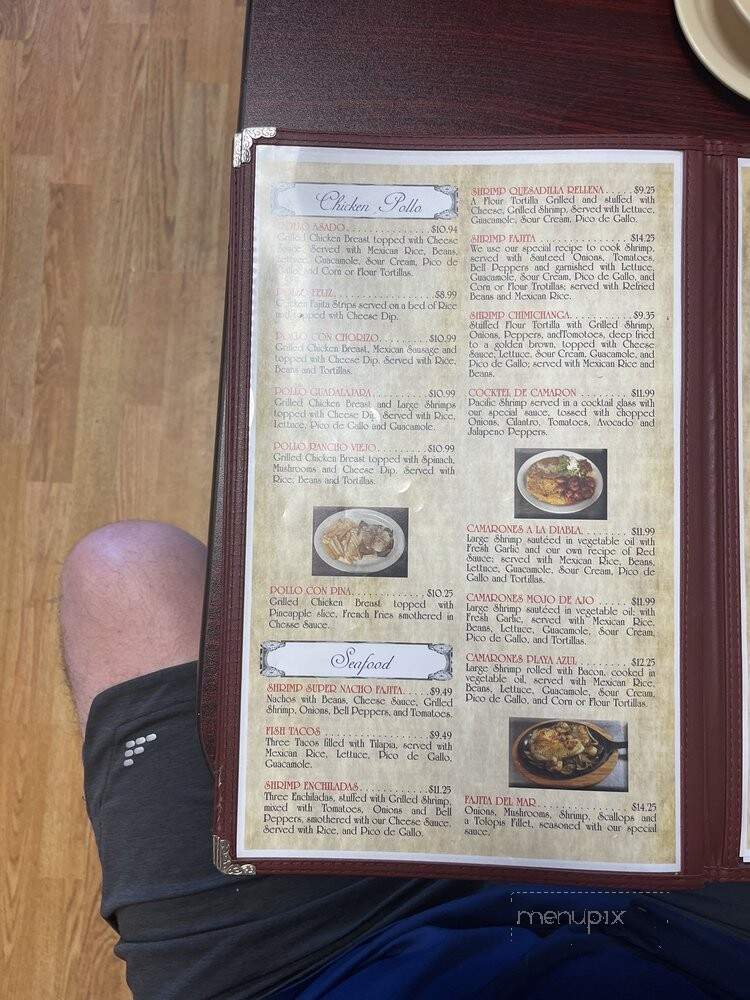 Chicken Pollo
ASADO. . . . . . . . . . . . . $10.94
Grilled Chicken Breast topped with Cheese
Served with Mexican Rice, Beans,
Guacamole, Sour Cream, Pico de
and Corn or Flour Tortillas.
FELIZ. . . . . . . . . . . . . . . . $8.99
Chicken Fajita Strips served on a bed of Rice
and topped with Cheese Dip.
POLLO CON CHORIZO. . . . . . . . $10.99
Grilled Chicken Breast, Mexican Sausage and
topped with Cheese Dip. Served with Rice,
Beans and Tortillas.
POLLO GUADALAJARA. . . . . . . . . $10.99
Grilled Chicken Breast and Large Shrimps
topped with Cheese Dip. Served with Rice,
Lettuce, Pico de Gallo and Guacamole.
POLLO RANCHO VIEJO. . . . . . . . $10.99
Grilled Chicken Breast topped with Spinach,
Mushrooms and Cheese Dip. Served with
Rice, Beans and Tortillas.
POLLO CON PINA. . . . . . . . . . . . $10.25
Grilled Chicken Breast topped with
Pineapple slice, French Fries smothered in
Chesse Sauce.
Seafood
SHRIMP SUPER NACHO FAJITA. . . . . $9.49
Nachos with Beans, Cheese Sauce, Grilled
Shrimp, Onions, Bell Peppers, and Tomatoes.
FISH TACOS . . . . . . . . . . . . . . . . . $9.49
Three Tacos filled with Tilapia, served with
Mexican Rice, Lettuce, Pico de Gallo,
Guacamole.
SHRIMP ENCHILADAS. . . . . . . . . . . $11.25
Three Enchiladas, stuffed with Grilled Shrimp,
mixed with Tomatoes, Onions and Bell
Peppers, smothered with our Cheese Sauce.
Served with Rice, and Pico de Gallo.
SHRIMP QUESADILLA RELLENA. . . . . $9.25
A Flour Tortilla Grilled and stuffed with
Cheese, Grilled Shrimp. Served with Lettuce,
Guacamole, Sour Cream, Pico de Gallo.
SHRIMP FAJITA . . . . . . . . . . . . . . $14.25
We use our special recipe to cook Shrimp,
served with Sauteed Onions, Tomatoes,
Bell Peppers and garnished with Lettuce,
Guacamole, Sour Cream, Pico de Gallo, and
Corn or Flour Trotillas; served with Refried
Beans and Mexican Rice.
SHRIMP CHIMICHANGA. . . . . . . . . . $9.35
Stuffed Flour Tortilla with Grilled Shrimp,
Onions, Peppers, andTomotoes, deep fried
to a golden brown, topped with Cheese
Sauce, Lettuce, Sour Cream, Guacamole, and
Pico de Gallo; served with Mexican Rice and
Beans.
COCKTEL DE CAMARON . . . . . . . . $11.99
Pacific Shrimp served in a cocktail glass with
our special sauce, tossed with chopped
Onions, Cilantro, Tomatoes, Avocado and
Jalapeno Peppers.
CAMARONES A LA DIABLA. . . . . . . $11.99
Large Shrimp sautéed in vegetable oil with
Fresh Garlic and our own recipe of Red
Sauce; served with Mexican Rice, Beans,
Lettuce, Guacamole, Sour Cream, Pico de
Gallo and Tortillas.
CAMARONES MOJO DE AJO . . . . . . $11.99
Large Shrimp sautéed in vegetable oil; with
Fresh Garlic, served with Mexican Rice,
Beans, Lettuce, Guacamole, Sour Cream,
Pico de Gallo, and Tortillas.
CAMARONES PLAYA AZUL . . . . . . . . $12.25
Large Shrimp rolled with Bacon, cooked in
vegetable oil, served with Mexican Rice,
Beans, Lettuce, Guacamole, Sour Cream,
Pico de Gallo, and Corn or Flour Tortillas.
FAJITA DEL MAR. . . . . . . . . . . . . . $14.25
Onions, Mushrooms, Shrimp, Scallops and
a Tolopis Fillet, seasoned with our special
sauce.
menupix